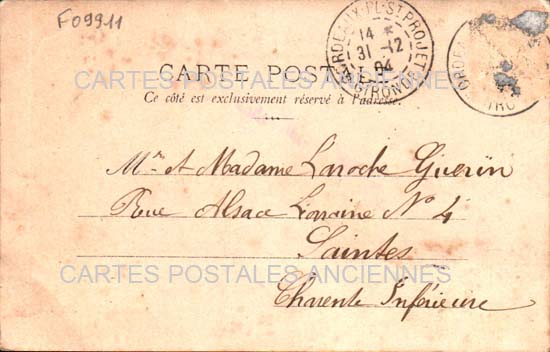 F09911
BORDEAUX-PL. ST PROJET
14
31-12
04
GIRONDE
CARTE POSTALE
Ce côté est exclusivement réservé à l'adresse.
CARTES POSTALES ANCIENNES
Mr et Madame Laroche Guérin
Rue Alsace Lorraine N° 4
Saintes
CARTES POSTALES ANCIENNES
Charente Inférieure